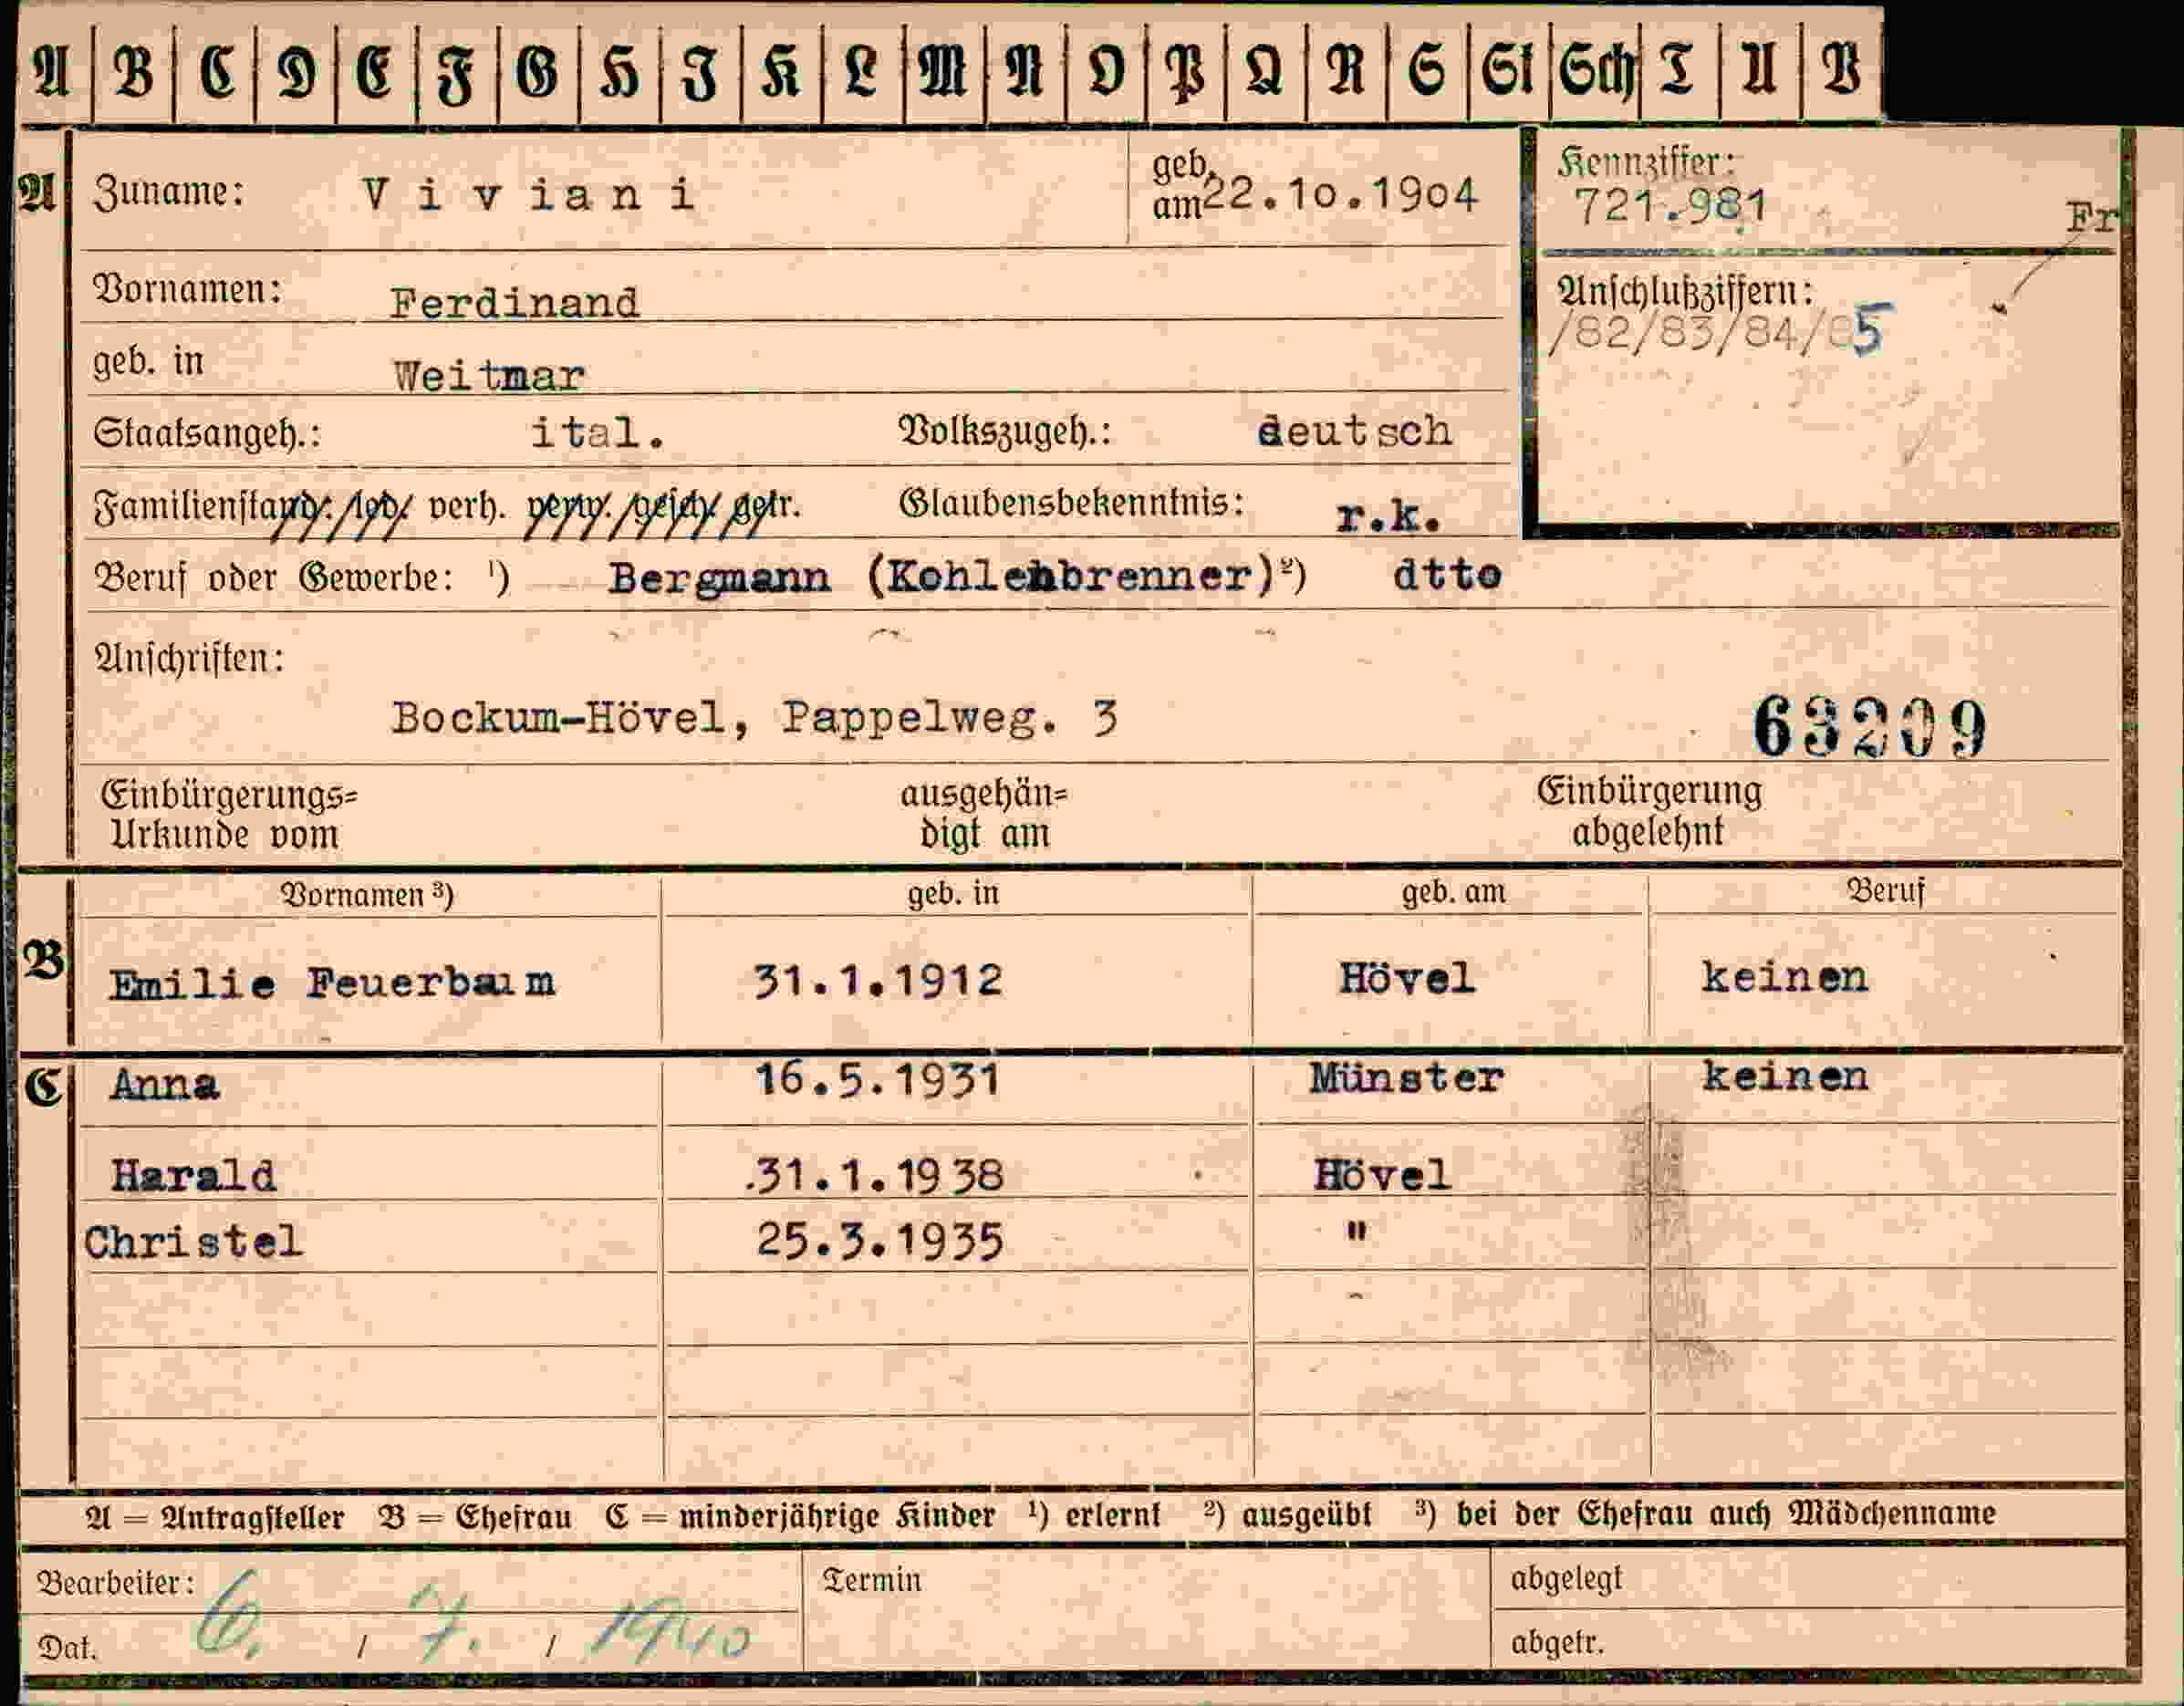 A B C D E F G H J K L M N O P Q R S St Sch T U V
A Zuname: Viviani geb. am 22.10.1904 Kennziffer: 721.981 Fr
Vornamen: Ferdinand Anschlußziffern:
/82/83/84/85
geb. in Weitmar
Staatsangeh.: ital. Volkszugeh.: deutsch
Familienstand: led. verh. verw. gesch. getr. Glaubensbekenntnis: r.k.
Beruf oder Gewerbe: ¹) Bergmann (Kohlenbrenner)²) dtto
Anschriften:
Bockum-Hövel, Pappelweg. 3 63209
Einbürgerungs= ausgehän= Einbürgerung
Urkunde vom digt am abgelehnt
Vornamen ³) geb. in geb. am Beruf
B Emilie Feuerbaum 31.1.1912 Hövel keinen
C Anna 16.5.1931 Münster keinen
Harald .31.1.1938 Hövel
Christel 25.3.1935 "
A = Antragsteller B = Ehefrau C = minderjährige Kinder ¹) erlernt ²) ausgeübt ³) bei der Ehefrau auch Mädchenname
Bearbeiter: Termin abgelegt
Dat. 6. / 7. / 1940 abgetr.